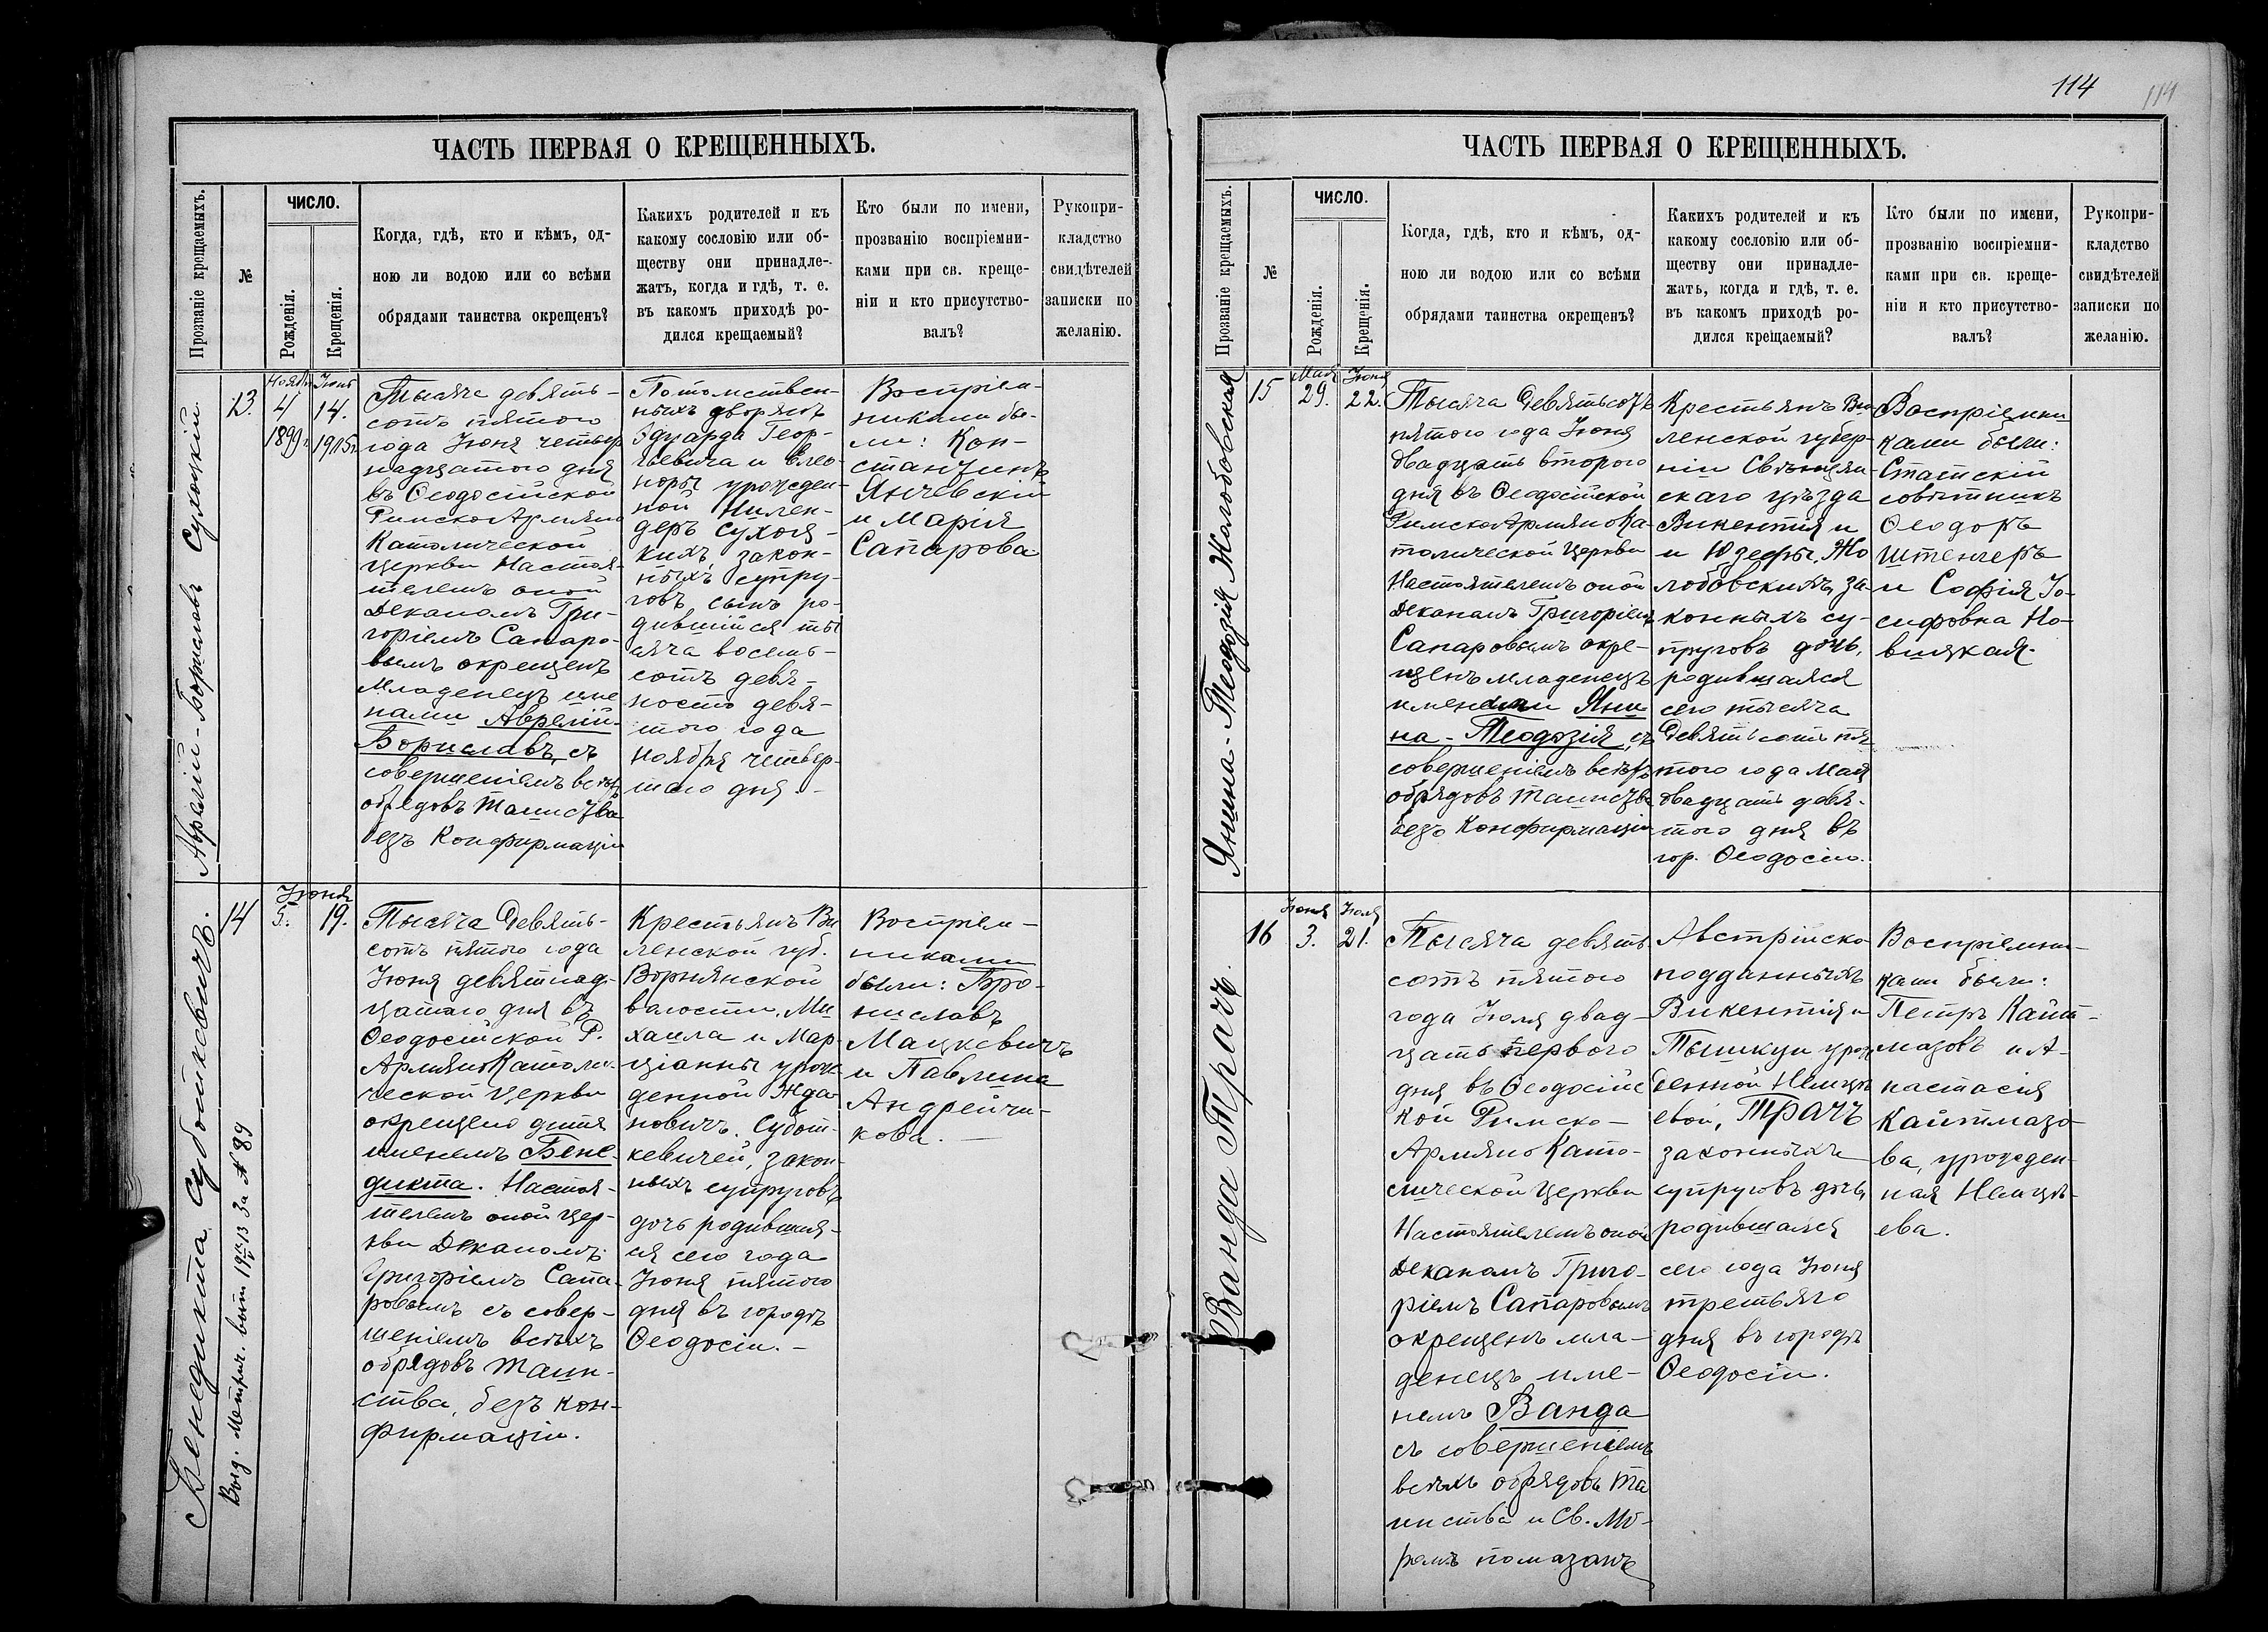 114
114
ЧАСТЬ ПЕРВАЯ О КРЕЩЕННЫХЪ.
Прозваніе крещаемыхъ.
№
ЧИСЛО.
Рожденія.
Крещенія.
Когда, гдѣ, кто и кѣмъ, од-
ною ли водою или со всѣми
обрядами таинства окрещенъ?
Какихъ родителей и къ
какому сословію или об-
ществу они принадле-
жатъ, когда и гдѣ, т. е.
въ какомъ приходѣ ро-
дился крещаемый?
Кто были по имени,
прозванію воспріемни-
ками при св. креще-
ніи и кто присутство-
валъ?
Рукопри-
кладство
свидѣтелей
записки по
желанію.
Аврелій-Бориславъ Сухоцкій.
13.
Ноября
4
1899г.
Іюня
14.
1905г.
Тысяча девять-
сотъ пятого
года Іюня четыр
надцатого дня
въ Ѳеодосійской
Римско Армяно
Католической
Церкви Настоя-
телемъ оной
Деканомъ Гри-
горіемъ Сапаро-
вымъ окрещенъ
младенецъ име
нами Аврелій-
Бориславъ, съ
совершеніемъ всѣхъ
обрядовъ Таинства
безъ Конфирмаціи
Потомствен-
ныхъ дворянъ
Эдуарда Геор-
гіевича и Элео-
норы урожден-
ной
ныхъ супру-
говъ сынъ ро-
дившійся ты
сяча восемь-
сотъ девя-
носто девя-
того года
ноября четвер-
таго дня.-
Воспріем-
никами бы-
ли: Кон-
стантинъ
Янчевскій
и Марія
Сапарова
Бенедикта Суботкевичъ.
Выд. метрич. вып. 19 13 За № 89
14
Іюня
5.
19.
Тысяча Девять-
сотъ пятого года
Іюня девятнад-
цатаго дня въ
Ѳеодосійской Р.
Армяно Католи-
ческой Церкви
окрещено дитя
именемъ Бене-
дикта. Настоя-
телемъ оной Цер-
кви Деканомъ
Григоріемъ Сапа-
ровымъ съ совер-
шеніемъ всѣхъ
обрядовъ Таин-
ства, безъ Кон-
фирмаціи.
Крестьянъ Ви
ленской губ.
Ворнянской
волости, Ми
хаила и Мар-
ціанны урож
денной Жда-
новичъ, Субот-
кевичей, закон-
ныхъ супруговъ
дочь родивша-
яся сего года
Іюня пятого
дня въ городѣ
Ѳеодосіи.-
Воспріем-
никами
были: Бро-
ниславъ
Мацкевичъ
и Павлина
Андрейчи-
кова.-
ЧАСТЬ ПЕРВАЯ О КРЕЩЕННЫХЪ.
Прозваніе крещаемыхъ.
№
ЧИСЛО.
Рожденія.
Крещенія.
Когда, гдѣ, кто и кѣмъ, од-
ною ли водою или со всѣми
обрядами таинства окрещенъ?
Какихъ родителей и къ
какому сословію или об-
ществу они принадле-
жатъ, когда и гдѣ, т. е.
въ какомъ приходѣ ро-
дился крещаемый?
Кто были по имени,
прозванію воспріемни-
ками при св. креще-
ніи и кто присутство-
валъ?
Рукопри-
кладство
свидѣтелей
записки по
желанію.
Янина-Теодозія Жолобовская
15
Мая
29.
Іюня
22.
Тысяча Девятьсотъ
пятого года Іюня
двадцать второго
дня въ Ѳеодосійской
Римско Армяно Ка-
толической Церкви
Настоятелемъ оной
Деканомъ Григоріемъ
Сапаровымъ окре-
щенъ младенецъ
именами Яни
на-Теодозія, съ
совершеніемъ всѣхъ
обрядовъ Таинства
безъ Конфирмаціи
Крестьянъ Ви
ленской губер-
ніи Свѣнцян-
скаго уѣзда
Викентія и
и Юзефы, Жо
лобовскихъ, за-
конныхъ су-
пруговъ дочь,
родившаяся
сего тысяча
Девятьсотъ пя
того года Мая
двадцать девя-
того дня въ
гор. Ѳеодосіи.
Воспріемни
ками были:
Статскій
совѣтникъ
Ѳеодоръ
Штенгеръ
и Софія Іо-
сифовна Но-
вицкая.
Ванда Трачъ.
16
Іюня
3.
Іюля
21.
Тысяча девять
сотъ пятого
года Іюля двад-
цать первого
дня въ Ѳеодосійс
кой Римско-
Армяно Като-
лической Церкви
Настоятелемъ оной
Деканомъ Григо-
ріемъ Сапаровымъ
окрещенъ мла-
денецъ име-
немъ Ванда
съ совершеніемъ
всѣхъ обрядовъ Та
инства и Св. Мѵ-
ромъ помазанъ
Австрійско
подданныхъ
Викентія и
урож
денной Немцѣ
евой, Трачъ
законныхъ
супруговъ дочь,
родившаяся
сего года Іюня
третьяго
дня въ городѣ
Ѳеодосіи.
Воспріемни-
ками были:
Петръ Кайт-
мазовъ и А-
настасія
Кайтмазо-
ва, урожден-
ная Немцѣ-
ева.